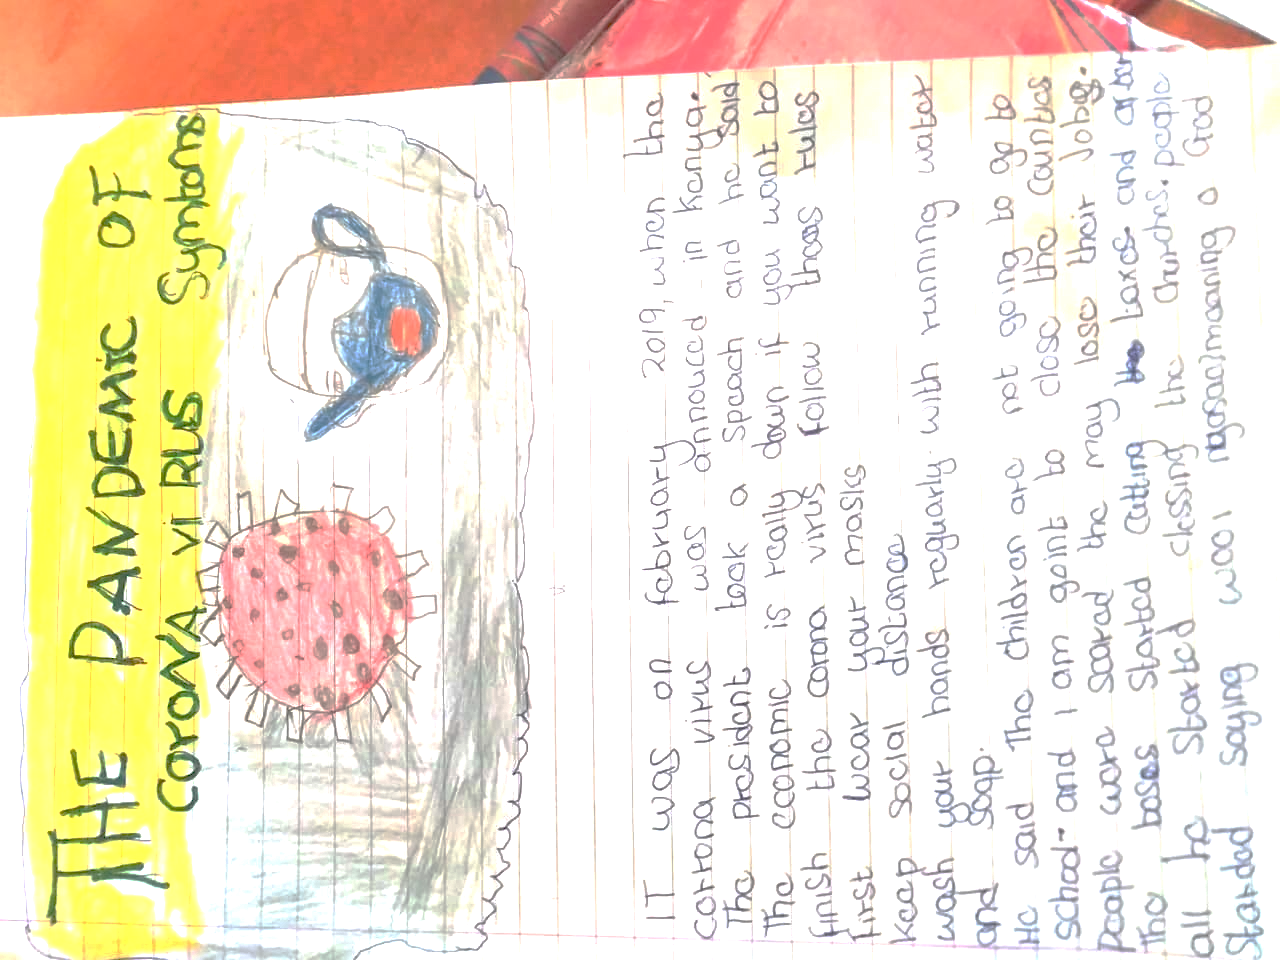 THE PANDEMIC OF
CORONA VIRUS Symtoms
IT was on february 2019, when the
corrona virus was annouced in Kenya.
The president took a Speach and he said
The economic is really down if you want to
finish the corona virus follow theas rules
First wear your masks
Keep social distance
wash your hands reguarly with running water
and soap.
He said The children are not going to go to
School and I am goint to close the Counties
People were scared the may lose their jobs.
The boses Started Cutting taxes and
all he Started clossing the churches. people
Starded saying wooi ngosae/meaning o God